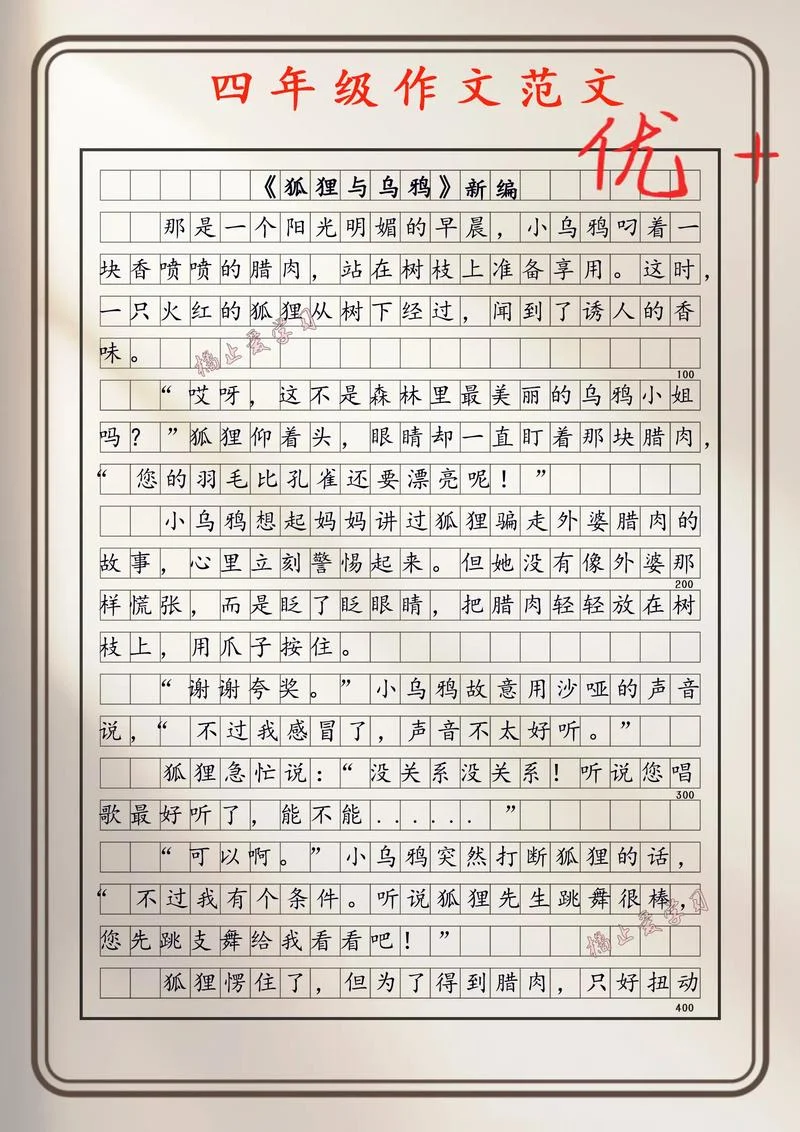 四年级作文范文
优+
《狐狸与乌鸦》新编
那是一个阳光明媚的早晨，小乌鸦叼着一
块香喷喷的腊肉，站在树枝上准备享用。这时，
一只火红的狐狸从树下经过，闻到了诱人的香
味。
橘止爱学习
100
“哎呀，这不是森林里最美丽的乌鸦小姐
吗？”狐狸仰着头，眼睛却一直盯着那块腊肉，
“您的羽毛比孔雀还要漂亮呢！”
小乌鸦想起妈妈讲过狐狸骗走外婆腊肉的
故事，心里立刻警惕起来。但她没有像外婆那
200
样慌张，而是眨了眨眼睛，把腊肉轻轻放在树
枝上，用爪子按住。
“谢谢夸奖。”小乌鸦故意用沙哑的声音
说，“不过我感冒了，声音不太好听。”
狐狸急忙说：“没关系没关系！听说您唱
300
歌最好听了，能不能......”
“可以啊。”小乌鸦突然打断狐狸的话，
“不过我有个条件。听说狐狸先生跳舞很棒，
您先跳支舞给我看看吧！”
橘止爱学习
狐狸愣住了，但为了得到腊肉，只好扭动
400